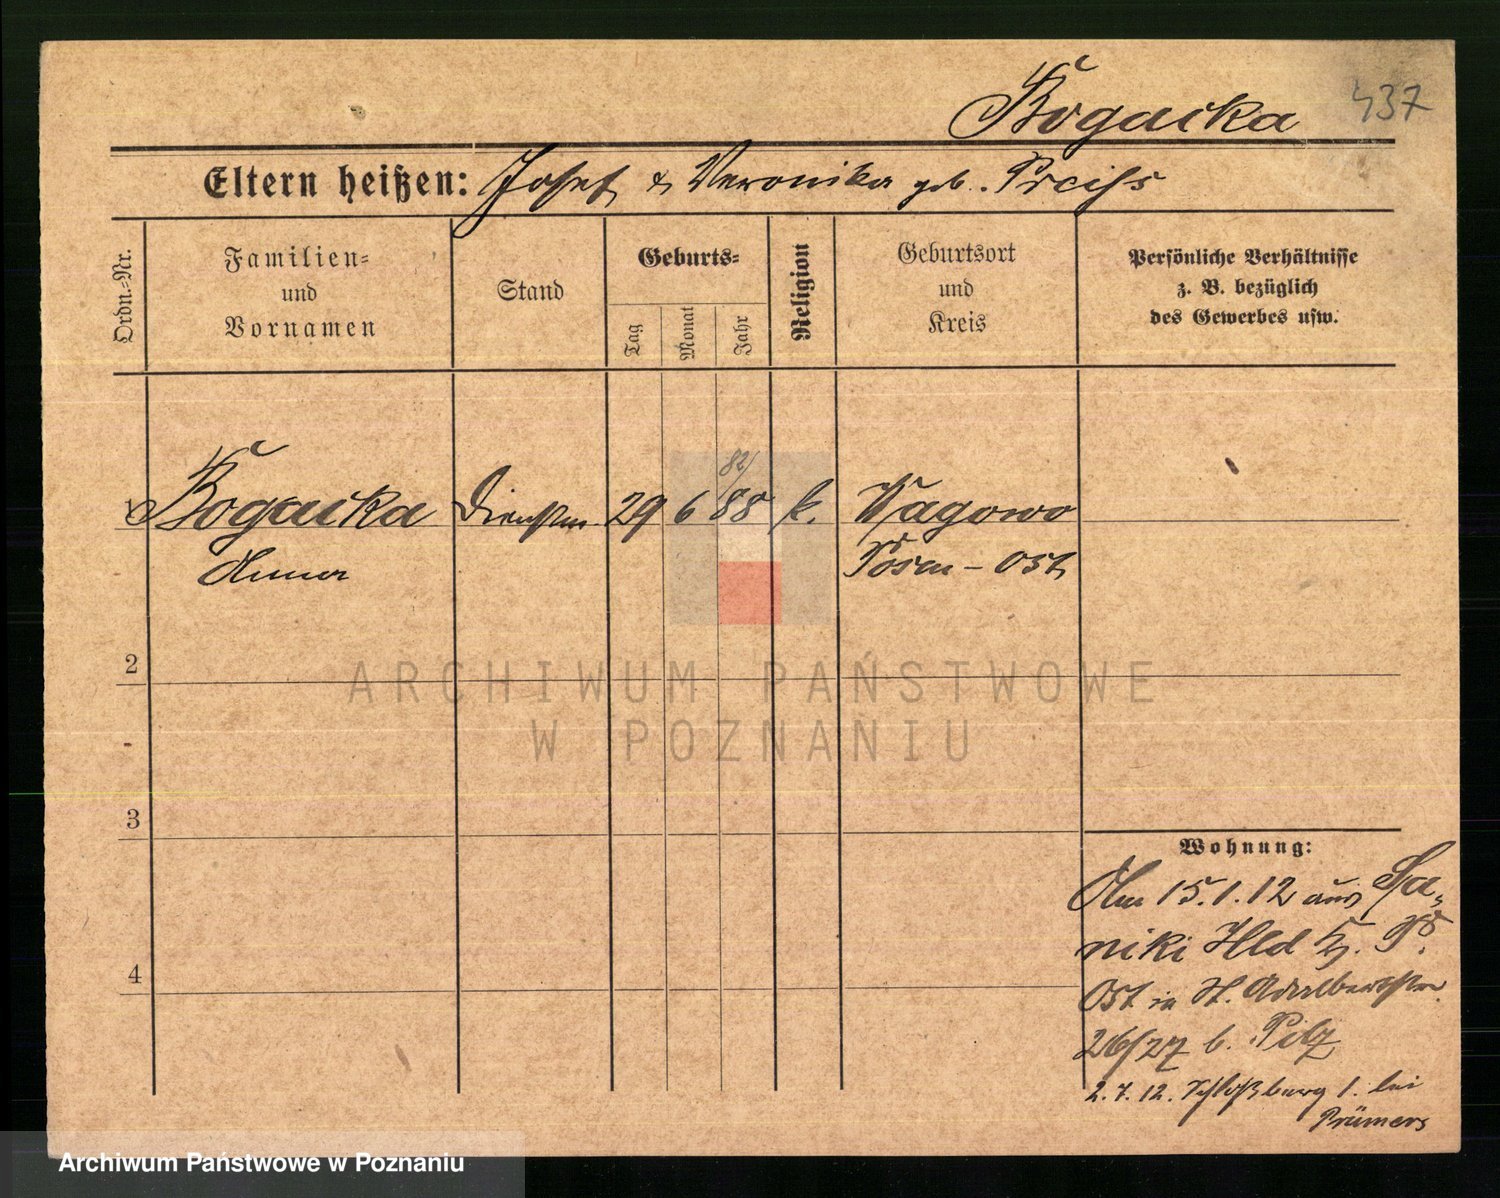 Bogacka
437
Eltern heißen: Josef & Veronika geb. Preiss
Ordn.-Nr.
Familien-
und
Vornamen
Stand
Geburts-
Tag
Monat
Jahr
Religion
Geburtsort
und
Kreis
Persönliche Verhältnisse
z. B. bezüglich
des Gewerbes usw.
82/
1 Bogacka Dienstm. 29 6 88 k. Wagowo
Anna Posen-Ost
2
3
4
Wohnung:
Am 15.1.12 aus
Ost in St. Adalbertstr.
26/27 b. Pilz
2.7.12. Schloßberg 1. bei
Prümers
ARCHIWUM PAŃSTWOWE
W POZNANIU
Archiwum Państwowe w Poznaniu